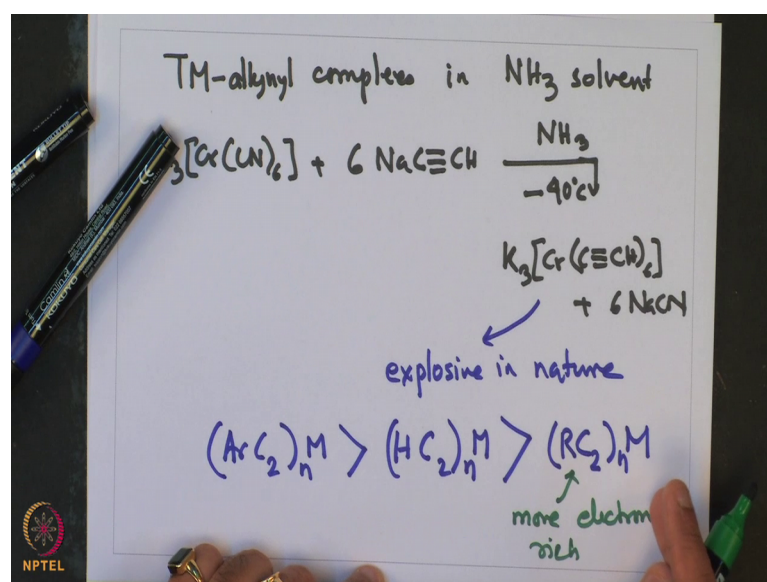 TM-alkynyl complexes in NH3 solvent
3[Cr(CN)6] + 6 NaC≡CH
NH3
-40°C
K3[Cr(C≡CH)6]
+ 6 NaCN
explosive in nature
(ArC2)nM > (HC2)nM > (RC2)nM
more electron
rich
Camlin
KOKUYO
CE
NPTEL